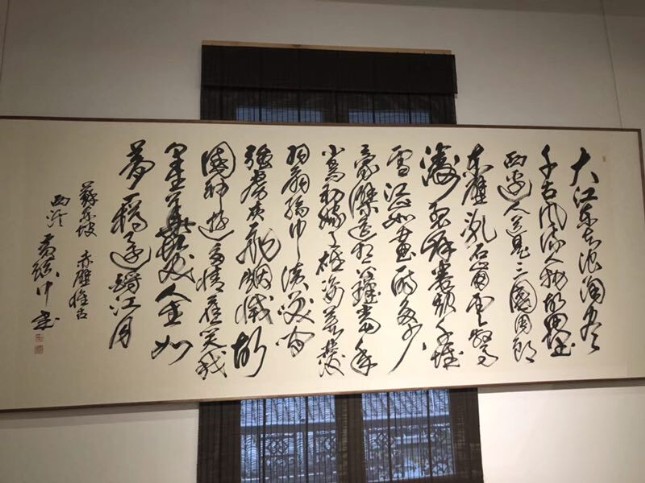 大江東去浪淘盡
千古風流人物故壘
西邊人道是三國周郎
赤壁亂石崩雲驚
濤裂岸捲起千堆
雪江山如畫一時多少
豪傑遙想公瑾當年
小喬初嫁了雄姿英發
羽扇綸巾談笑間
強虜灰飛煙滅故
國神遊多情應笑我
早生華髮人間如
夢一樽還酹江月
蘇東坡 赤壁懷古
西泠